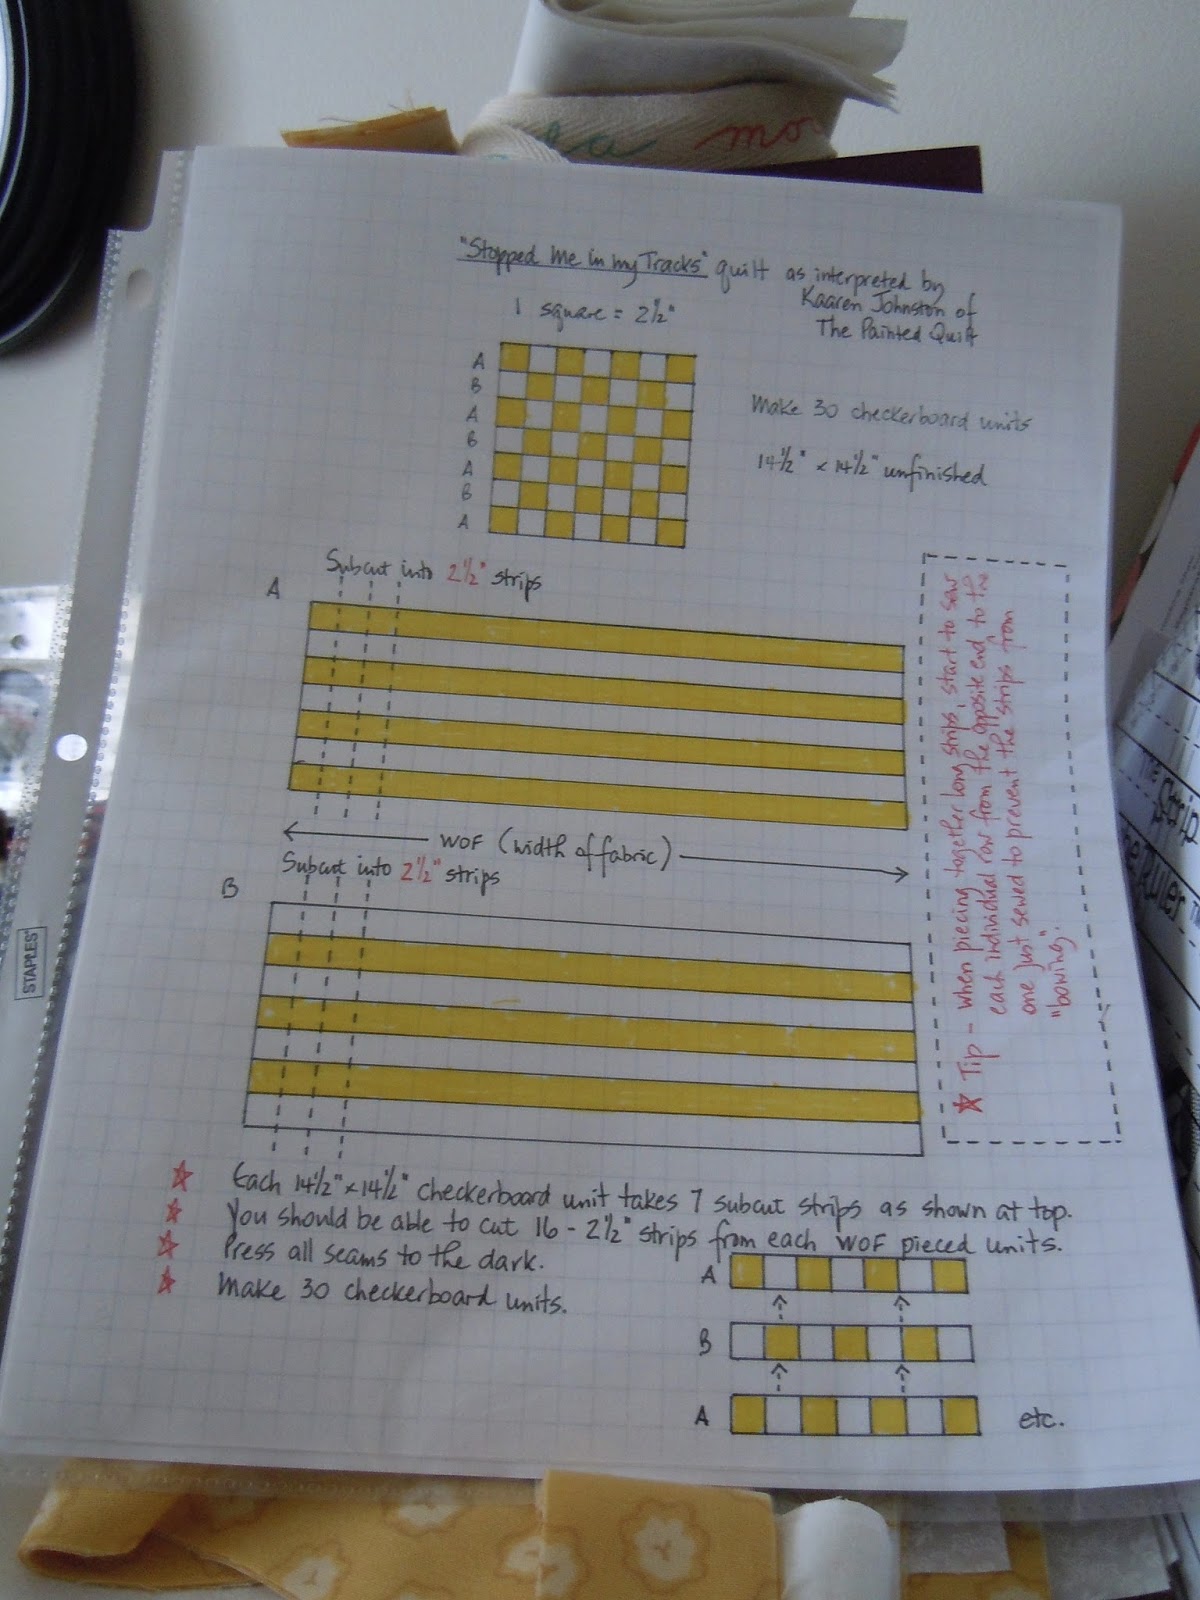 la mo
"Stopped Me in my Tracks" quilt as interpreted by
Kaaren Johnston of
The Painted Quilt
1 square = 2½"
A
B
A
B
A
B
A
Make 30 checkerboard units
14½" x 14½" unfinished
Subcut into 2½" strips
A
WOF (width of fabric)
Subcut into 2½" strips
B
☆ Tip - when piecing together long strips, start to sew
each individual row from the opposite end to the
one just sewed to prevent the strips from
"bowing."
STAPLES
☆ Each 14½" x 14½" checkerboard unit takes 7 subcut strips as shown at top.
☆ You should be able to cut 16 - 2½" strips from each WOF pieced units.
☆ Press all seams to the dark.
☆ Make 30 checkerboard units.
A
B
A etc.
The Strip
Ruler